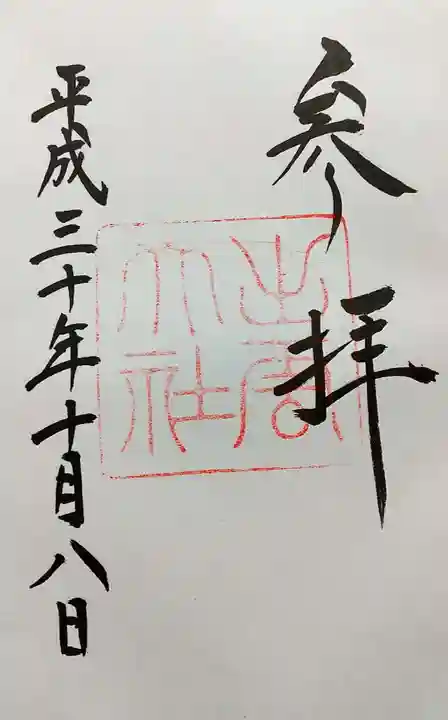 参拝
出雲大社
平成三十年十月八日